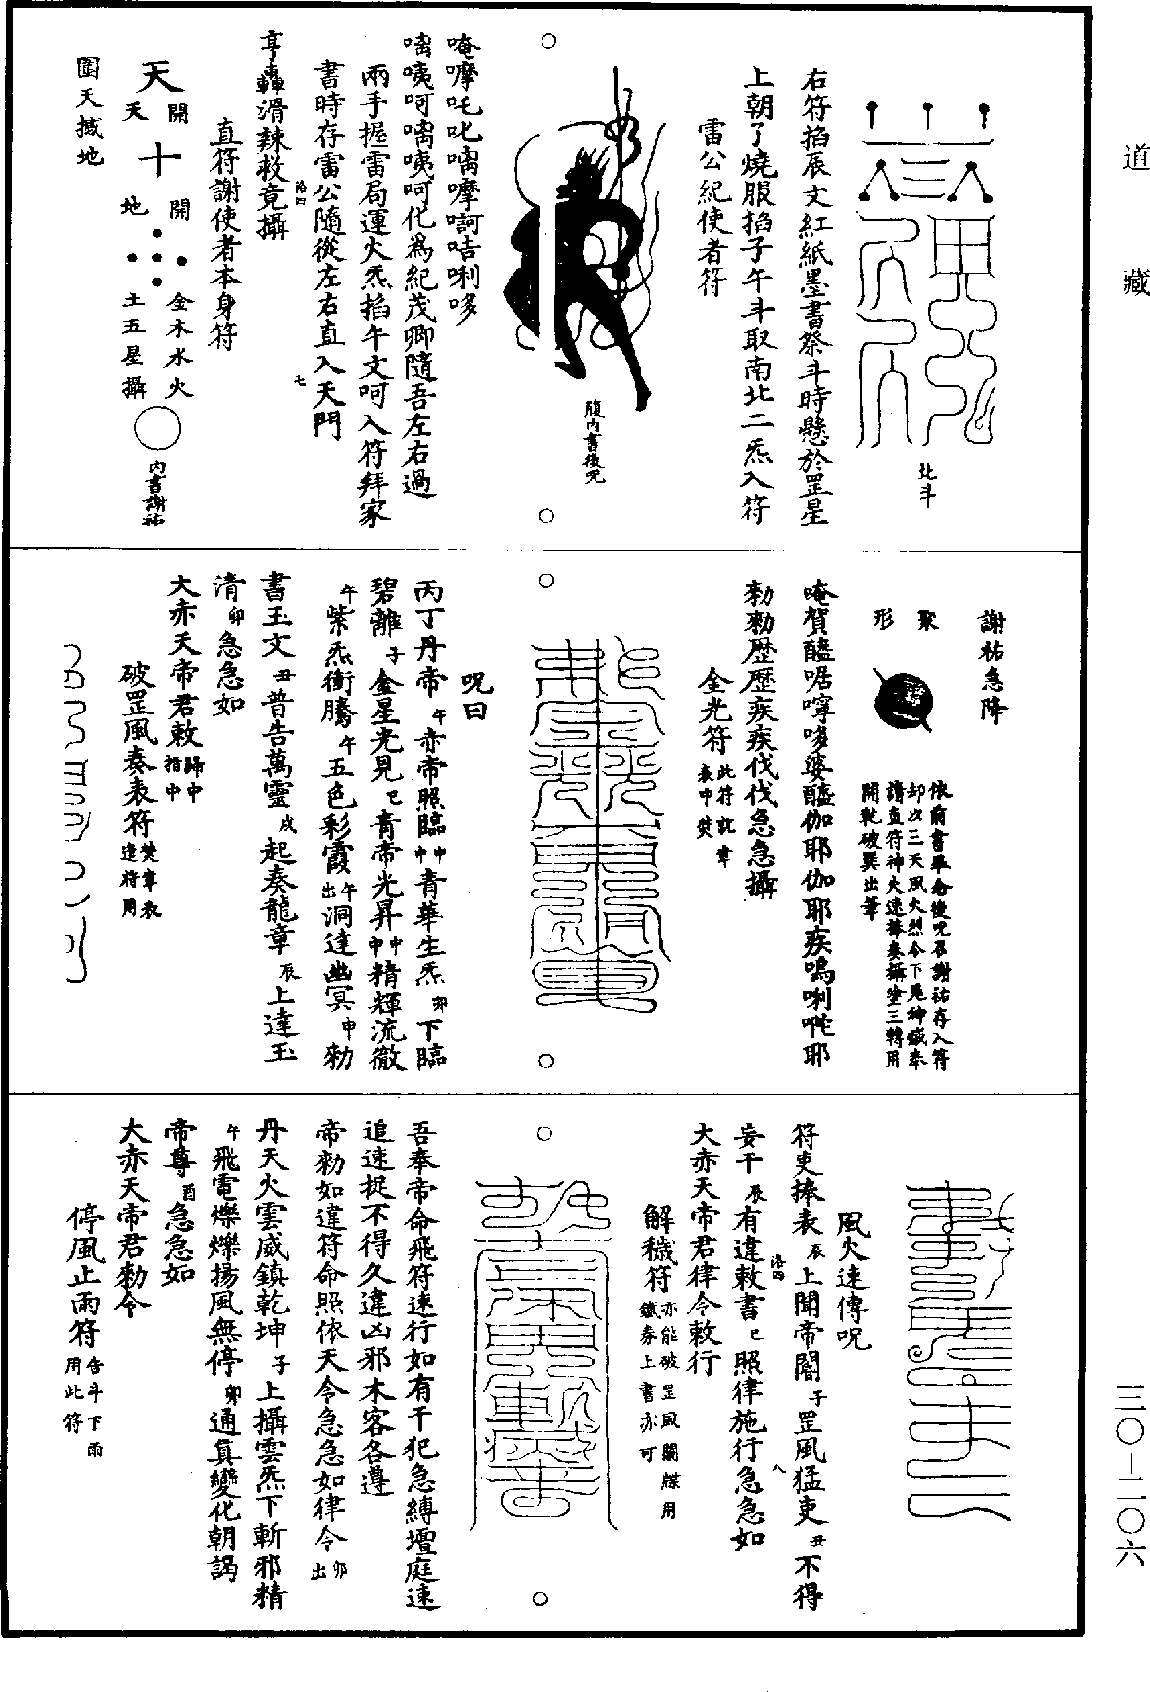 道藏
北斗
右符掐辰文紅紙墨書祭斗時懸於罡星
上朝了燒服掐子午斗取南北二炁入符
雷公紀使者符
腹內書後咒
唵嚤吒叱嗬嚤訶咭唎哆
嗬咦呵嗬咦呵化為紀茂卿隨吾左右過
兩手握雷局運火炁掐午文呵入符拜家
書時存雷公隨從左右直入天門
七
亨轟滑辣敕竟攝
洛四
直符謝使者本身符
開 開 金木水火
天 十
天 地 土五星攝
內書謝祐
圍天撼地
謝祐急降
聚形
依前書畢念後咒召謝祐存入符
却次三天風火烈令下鬼神欽奉
請直符神火速捧奏攝塗三轉用
開乾破巽出筆
唵賀醯唔嚀哆婆醯伽耶伽耶疾嗚唎㗌耶
勑勑歷歷疾疾伐伐急急攝
金光符 此符就章表中焚
咒曰
丙丁丹帝 午 赤帝照臨 中中 青華生炁 卯 下臨
碧離 子 金星光見 巳 青帝光昇 中中 精輝流徹
午 紫炁衝騰 午 五色彩霞 午出 洞達幽冥 申 勑
書玉文 丑 普告萬靈 戌 起奏龍章 辰 上達玉
清 卯 急急如
大赤天帝君敕 歸中指中
破罡風奏表符 焚章表遣將用
風火速傳咒
符吏捧表 辰 上聞帝閽 子 罡風猛吏 丑 不得
洛四
八
妄干 辰 有違敕書 巳 照律施行急急如
大赤天帝君律令敕行
解穢符 亦能破罡風關牒用鐵券上書亦可
吾奉帝命飛符速行如有干犯急縛壇庭速
追速捉不得久違凶邪木客各遵
帝勑如違符命照依天令急急如律令 卯出
丹天火雲威鎮乾坤 子 上攝雲炁下斬邪精
午 飛電爍爍揚風無停 卯 通真變化朝謁
帝尊 酉 急急如
大赤天帝君勑令
停風止雨符 告斗下雨用此符
三〇－二〇六